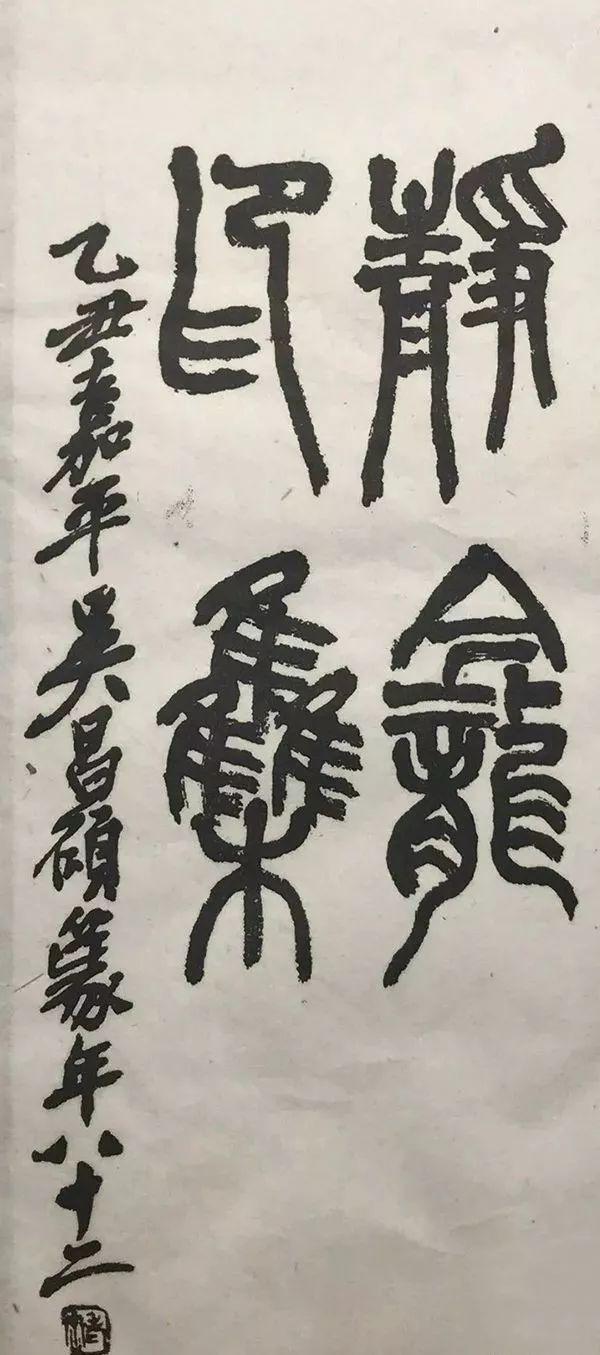 靜龕
印集
乙丑嘉平吴昌碩篆年八十二